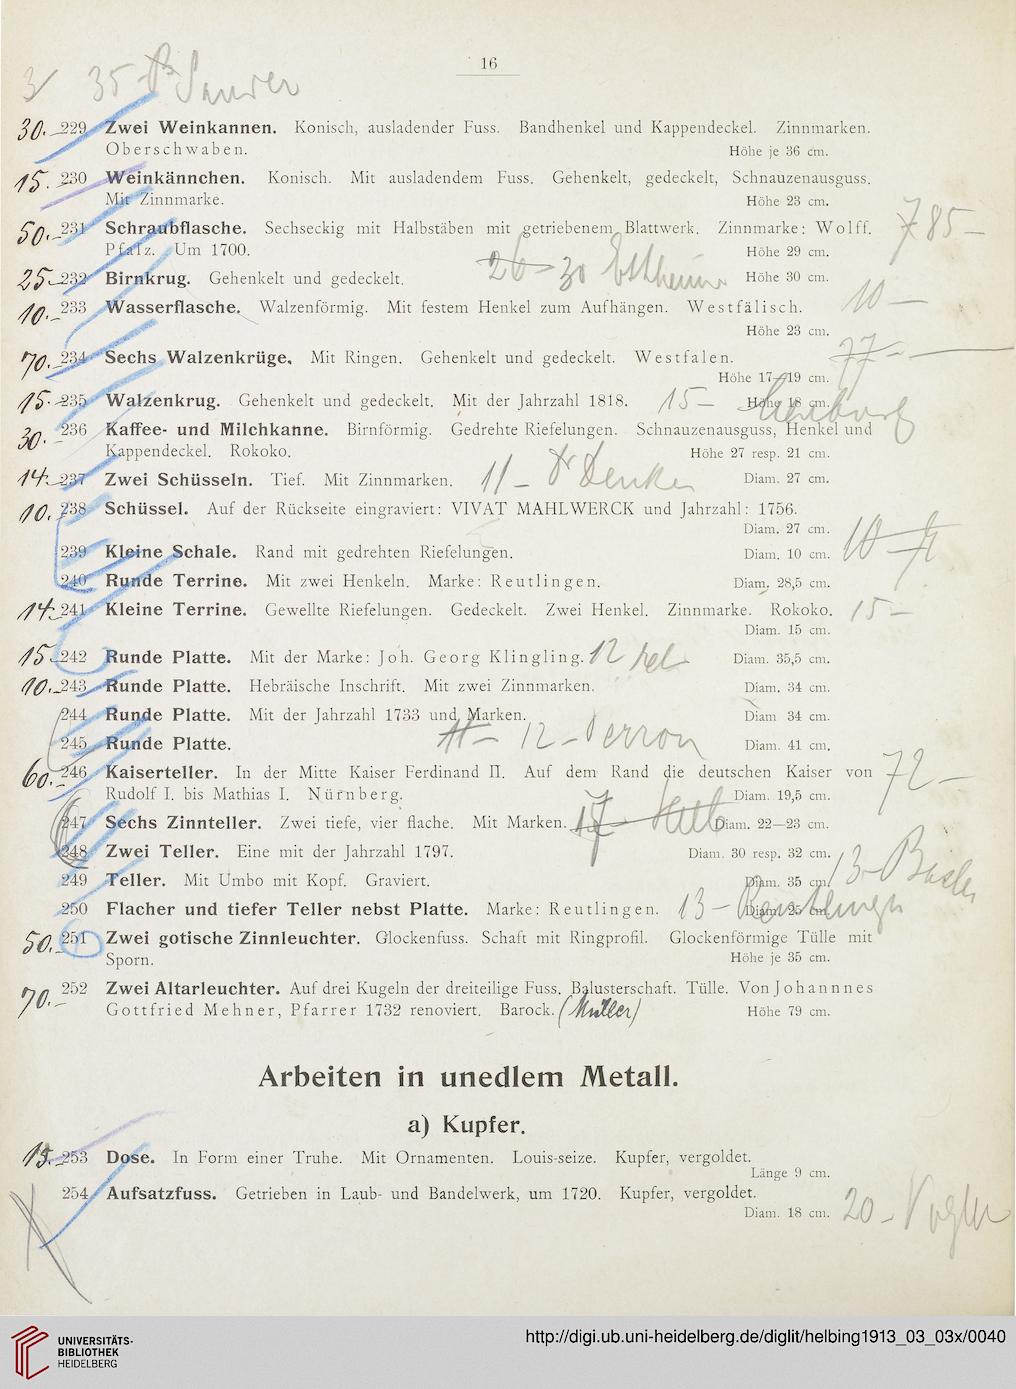 16
35
30.- 229 Zwei Weinkannen. Konisch, ausladender Fuss. Bandhenkel und Kappendeckel. Zinnmarken.
Oberschwaben. Höhe je 36 cm.
15.- 230 Weinkännchen. Konisch. Mit ausladendem Fuss. Gehenkelt, gedeckelt, Schnauzenausguss.
Mit Zinnmarke. Höhe 23 cm.
50.- 231 Schraubflasche. Sechseckig mit Halbstäben mit getriebenem Blattwerk. Zinnmarke: Wolff.
Pfalz. Um 1700. Höhe 29 cm.
25.- 232 Birnkrug. Gehenkelt und gedeckelt. Höhe 30 cm.
10.- 233 Wasserflasche. Walzenförmig. Mit festem Henkel zum Aufhängen. Westfälisch. 10 —
Höhe 23 cm.
70.- 234 Sechs Walzenkrüge. Mit Ringen. Gehenkelt und gedeckelt. Westfalen. 77 -
Höhe 17—19 cm.
15.- 235 Walzenkrug. Gehenkelt und gedeckelt. Mit der Jahrzahl 1818. 15 — Höhe 18 cm.
30.- 236 Kaffee- und Milchkanne. Birnförmig. Gedrehte Riefelungen. Schnauzenausguss, Henkel und
Kappendeckel. Rokoko. Höhe 27 resp. 21 cm.
14.- 237 Zwei Schüsseln. Tief. Mit Zinnmarken. 11 - Diam. 27 cm.
10. 238 Schüssel. Auf der Rückseite eingraviert: VIVAT MAHLWERCK und Jahrzahl: 1756.
Diam. 27 cm.
239 Kleine Schale. Rand mit gedrehten Riefelungen. Diam. 10 cm.
240 Runde Terrine. Mit zwei Henkeln. Marke: Reutlingen. Diam. 28,5 cm.
14.- 241 Kleine Terrine. Gewellte Riefelungen. Gedeckelt. Zwei Henkel. Zinnmarke. Rokoko. 15 -
Diam. 15 cm.
15.- 242 Runde Platte. Mit der Marke: Joh. Georg Klingling. 12 Diam. 35,5 cm.
10.- 243 Runde Platte. Hebräische Inschrift. Mit zwei Zinnmarken. Diam. 34 cm.
244 Runde Platte. Mit der Jahrzahl 1733 und Marken. Diam 34 cm.
245 Runde Platte. 11 - 12 - Diam. 41 cm.
60.- 246 Kaiserteller. In der Mitte Kaiser Ferdinand II. Auf dem Rand die deutschen Kaiser von 72 —
Rudolf I. bis Mathias I. Nürnberg. Diam. 19,5 cm.
247 Sechs Zinnteller. Zwei tiefe, vier flache. Mit Marken. 17 Diam. 22—23 cm.
248 Zwei Teller. Eine mit der Jahrzahl 1797. Diam. 30 resp. 32 cm.
249 Teller. Mit Umbo mit Kopf. Graviert. Diam. 35 cm. 13 - Basler
250 Flacher und tiefer Teller nebst Platte. Marke: Reutlingen. 13 - Diam. 25 cm.
50.- 251 Zwei gotische Zinnleuchter. Glockenfuss. Schaft mit Ringprofil. Glockenförmige Tülle mit
Sporn. Höhe je 35 cm.
70.- 252 Zwei Altarleuchter. Auf drei Kugeln der dreiteilige Fuss. Balusterschaft. Tülle. Von Johannnes
Gottfried Mehner, Pfarrer 1732 renoviert. Barock. (Müller) Höhe 79 cm.
Arbeiten in unedlem Metall.
a) Kupfer.
15.- 253 Dose. In Form einer Truhe. Mit Ornamenten. Louis-seize. Kupfer, vergoldet.
Länge 9 cm.
254 Aufsatzfuss. Getrieben in Laub- und Bandelwerk, um 1720. Kupfer, vergoldet.
Diam. 18 cm. 20 - Vogler
UNIVERSITÄTS-
BIBLIOTHEK
HEIDELBERG
http://digi.ub.uni-heidelberg.de/diglit/helbing1913_03_03x/0040